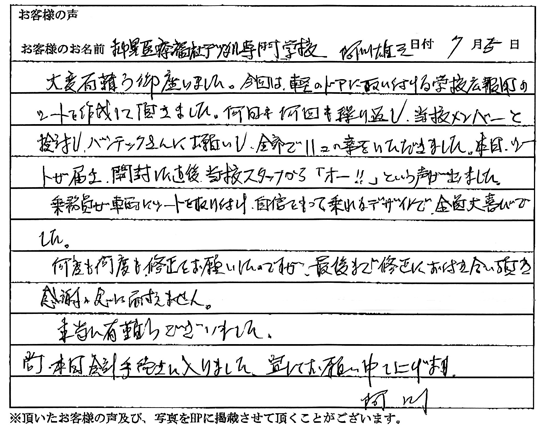 お客様の声
お客様のお名前 群馬医療福祉デジタル専門学校 阿川雄之 日付 7月5日
大変有難う御座いました。今回は、車のドアに取り付ける学校広報用の
シートを作成して頂きました。何回も何回も繰り返し、当校メンバーと
検討し、バンテックさんにお願いし、全部で11コの車をいただきました。本日、シー
トが届き、開封した直後当校スタッフから「オー!!」という声が出ました。
乗務員が車両にシートを取り付け、自信をもって乗れるデザインで、全員大喜びで
した。
何度も何度も修正をお願いしたのですが、最後まで修正におつき合い頂き
感謝の念に耐えません。
本当に有難うございました。
尚、本日会計手続きに入りました、宜しくお願い申し上げます。
阿川
※頂いたお客様の声及び、写真をHPに掲載させて頂くことがございます。